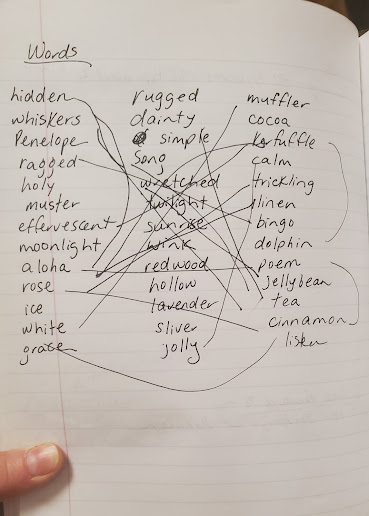 Words
hidden
whiskers
Penelope
ragged
holy
muster
effervescent
moonlight
aloha
rose
ice
white
grace
rugged
dainty
simple
Song
wretched
twilight
sunrise
wink
redwood
hollow
lavender
sliver
jolly
muffler
cocoa
kerfuffle
calm
trickling
linen
bingo
dolphin
poem
jellybean
tea
cinnamon
listen